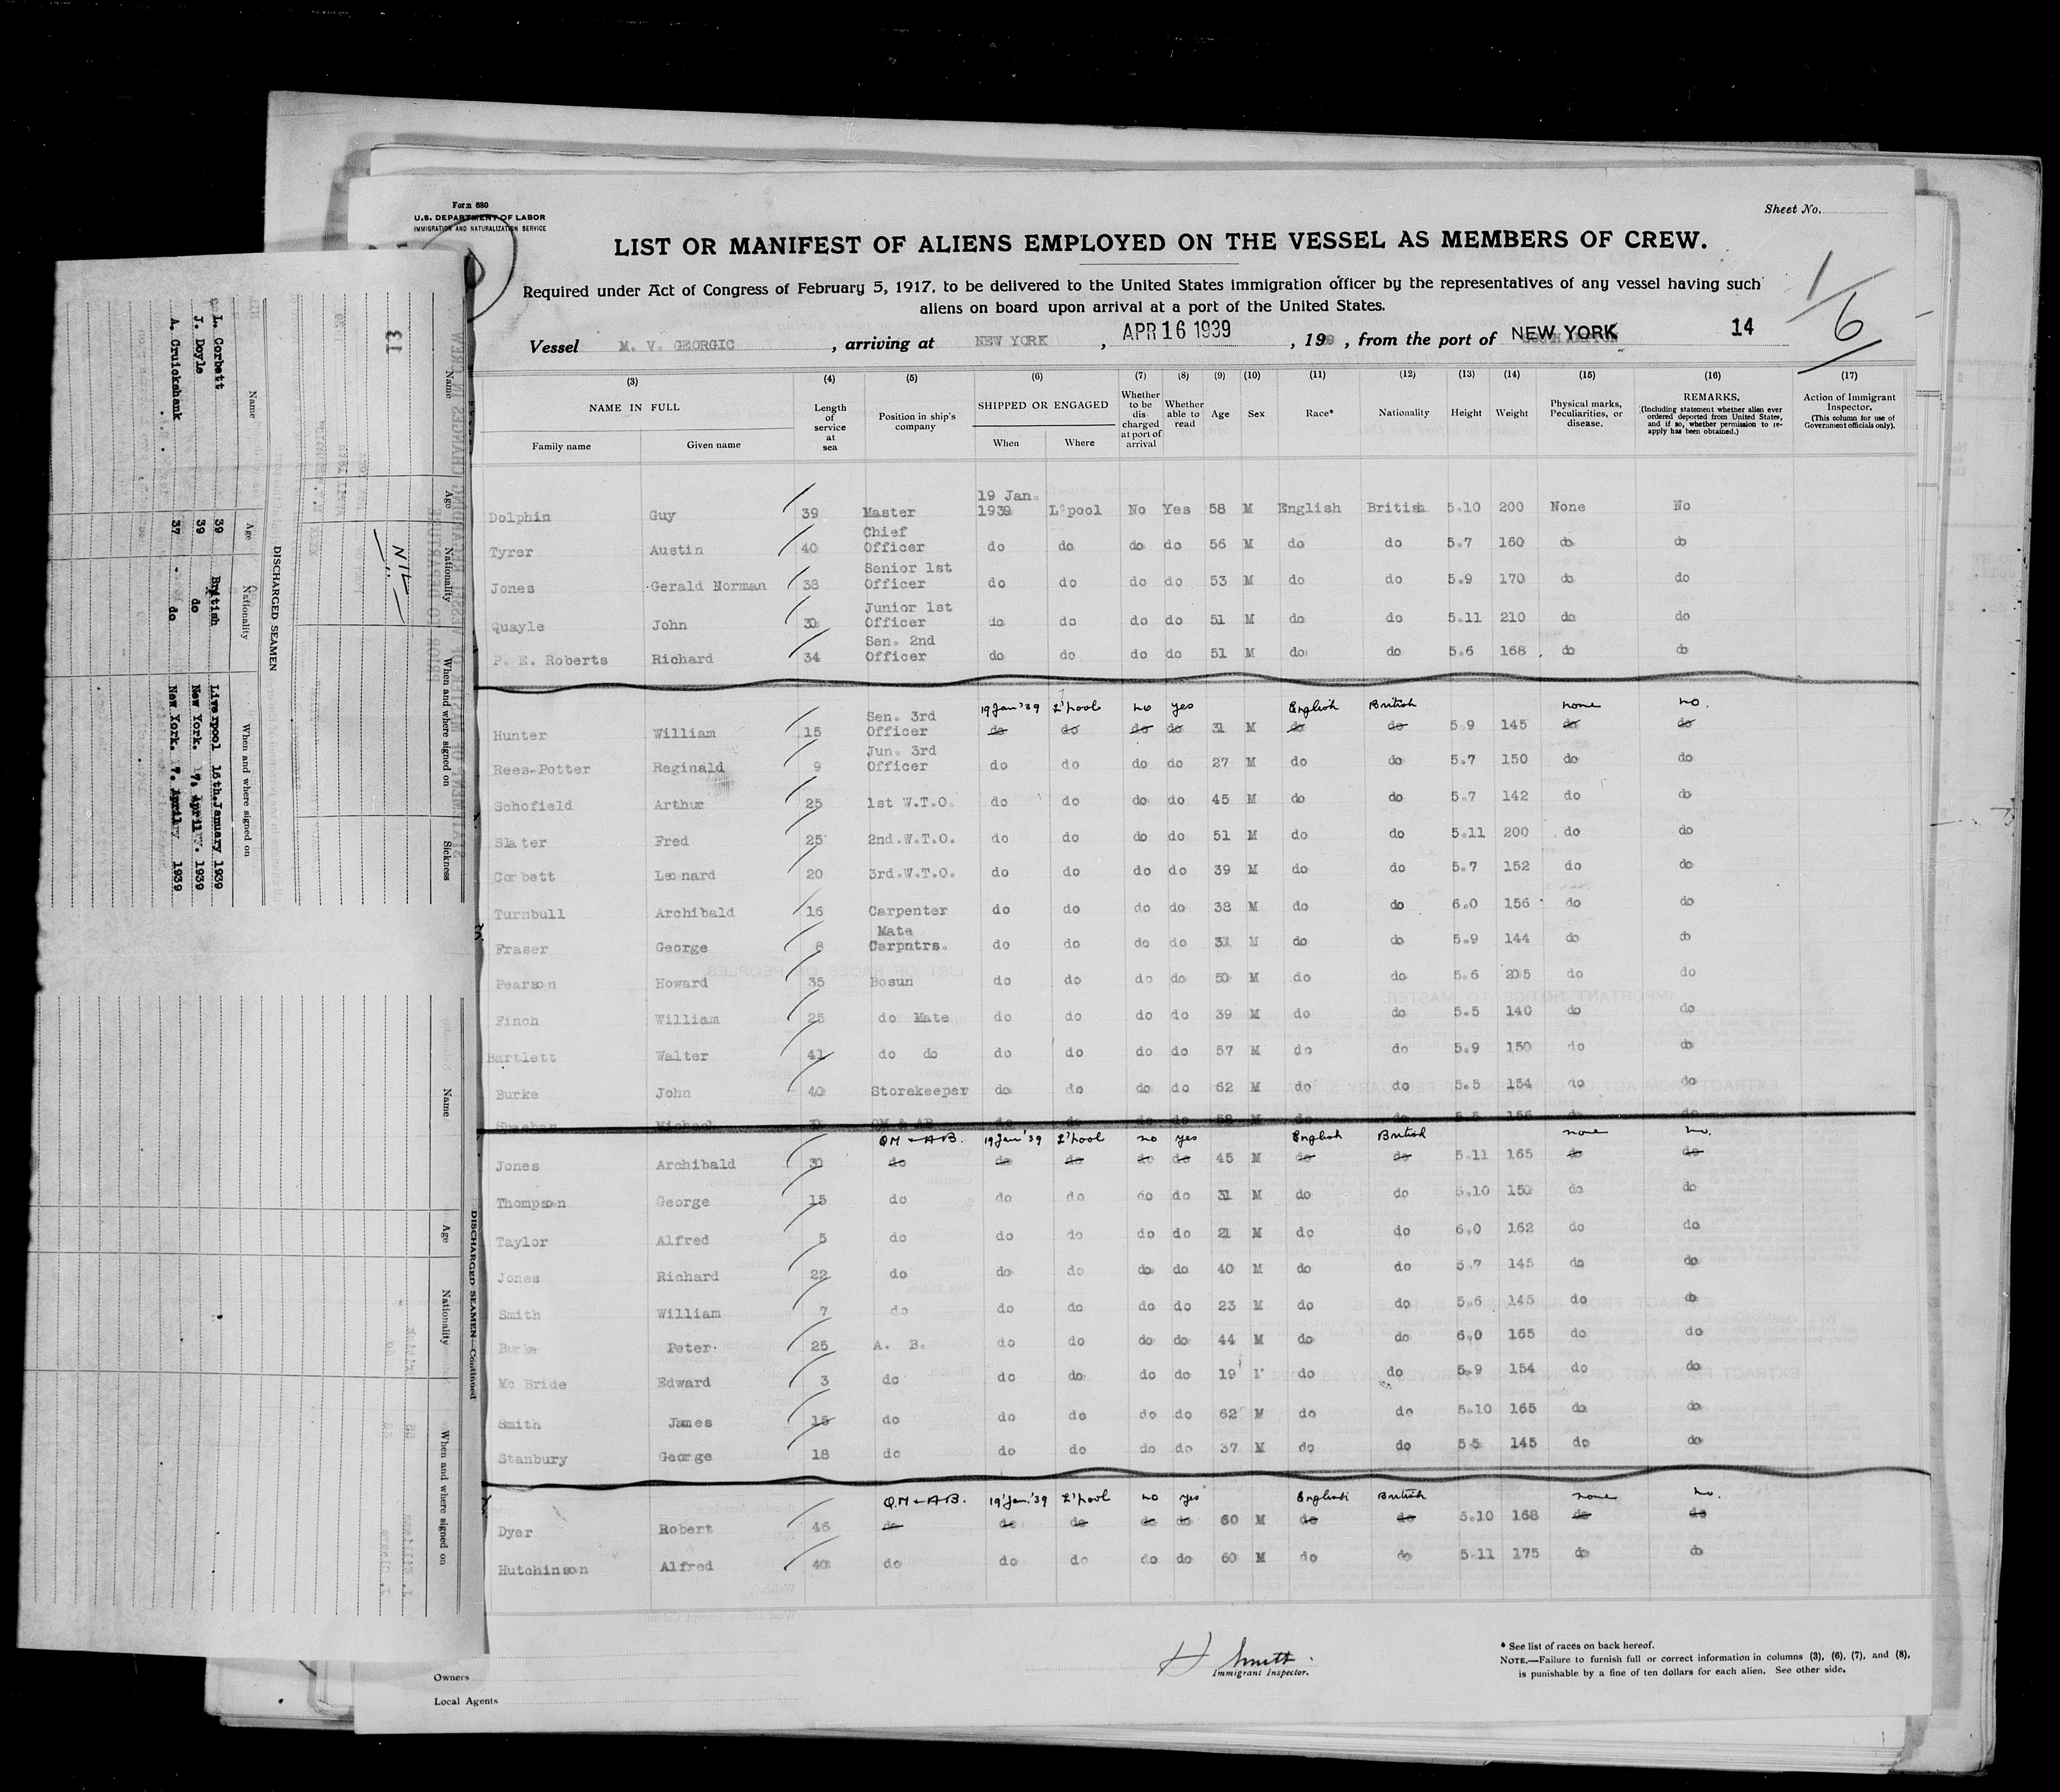 Form 680
U.S. DEPARTMENT OF LABOR
IMMIGRATION AND NATURALIZATION SERVICE
Sheet No.
LIST OR MANIFEST OF ALIENS EMPLOYED ON THE VESSEL AS MEMBERS OF CREW.
Required under Act of Congress of February 5, 1917, to be delivered to the United States immigration officer by the representatives of any vessel having such
aliens on board upon arrival at a port of the United States.
1/6
Vessel M. V. GEORGIC, arriving at NEW YORK, APR 16 1939, 199, from the port of NEW YORK 14
(3) (4) (5) (6) (7) (8) (9) (10) (11) (12) (13) (14) (15) (16) (17)
NAME IN FULL
Family name Given name
Length of service at sea
Position in ship's company
SHIPPED OR ENGAGED
When Where
Whether to be dis charged at port of arrival
Whether able to read
Age Sex Race* Nationality Height Weight
Physical marks, Peculiarities, or disease.
REMARKS.
(Including statement whether alien ever ordered deported from United States, and if so, whether permission to re-apply has been obtained.)
Action of Immigrant Inspector.
(This column for use of Government officials only).
Dolphin Guy 39 Master 19 Jan. 1939 L'pool No Yes 58 M English British 5.10 200 None No
Tyrer Austin 40 Chief Officer do do do do 56 M do do 5.7 160 do do
Jones Gerald Norman 38 Senior 1st Officer do do do do 53 M do do 5.9 170 do do
Quayle John 30 Junior 1st Officer do do do do 51 M do do 5.11 210 do do
P. E. Roberts Richard 34 Sen. 2nd Officer do do do do 51 M do do 5.6 168 do do
19 Jan '39 L'pool no yes English British none no.
Hunter William 15 Sen. 3rd Officer do do do do 31 M do do 5.9 145 do do
Rees-Potter Reginald 9 Jun. 3rd Officer do do do do 27 M do do 5.7 150 do do
Schofield Arthur 25 1st W.T.O. do do do do 45 M do do 5.7 142 do do
Slater Fred 25 2nd.W.T.O. do do do do 51 M do do 5.11 200 do do
Corbett Leonard 20 3rd.W.T.O. do do do do 39 M do do 5.7 152 do do
Turnbull Archibald 16 Carpenter do do do do 38 M do do 6.0 156 do do
Fraser George 8 Mate Carpntrs. do do do do M do do 5.9 144 do do
Pearson Howard 35 Bosun do do do do 50 M do do 5.6 205 do do
Finch William 25 do Mate do do do do 39 M do do 5.5 140 do do
Bartlett Walter 41 do do do do do do 57 M do do 5.9 150 do do
Burke John 40 Storekeeper do do do do 62 M do do 5.5 154 do do
Michael QM & AB do do do do 58 M do do 5.5 156 do do
QM & AB. 19 Jan '39 L'pool no yes English British none no.
Jones Archibald 30 do do do do do 45 M do do 5.11 165 do do
Thompson George 15 do do do do do 31 M do do 5.10 150 do do
Taylor Alfred 5 do do do do do 21 M do do 6.0 162 do do
Jones Richard 22 do do do do do 40 M do do 5.7 145 do do
Smith William 7 do do do do do 23 M do do 5.6 145 do do
Burke Peter 25 A. B. do do do do 44 M do do 6.0 165 do do
Mc Bride Edward 3 do do do do do 19 do do 5.9 154 do do
Smith James 15 do do do do do 62 M do do 5.10 165 do do
Stanbury George 18 do do do do do 37 M do do 5 5 145 do do
QM & AB. 19 Jan. '39 L'pool no yes English British none no.
Dyer Robert 46 do do do do do 60 M do do 5.10 168 do do
Hutchinson Alfred 40 do do do do do 60 M do do 5.11 175 do do
H Smith
Immigrant Inspector.
* See list of races on back hereof.
NOTE.—Failure to furnish full or correct information in columns (3), (6), (7), and (8),
is punishable by a fine of ten dollars for each alien. See other side.
Owners
Local Agents
13
Name Age Nationality When and where signed on Sickness
NIL
DISCHARGED SEAMEN
Name Age Nationality When and where signed on
L. Corbett 39 British Liverpool 16th.January 1939
J. Doyle 39 do New York. 7. April. 1939
A. Cruickshank 37 do New York. 7. April 1939
DISCHARGED SEAMEN—Continued
Name Age Nationality When and where signed on